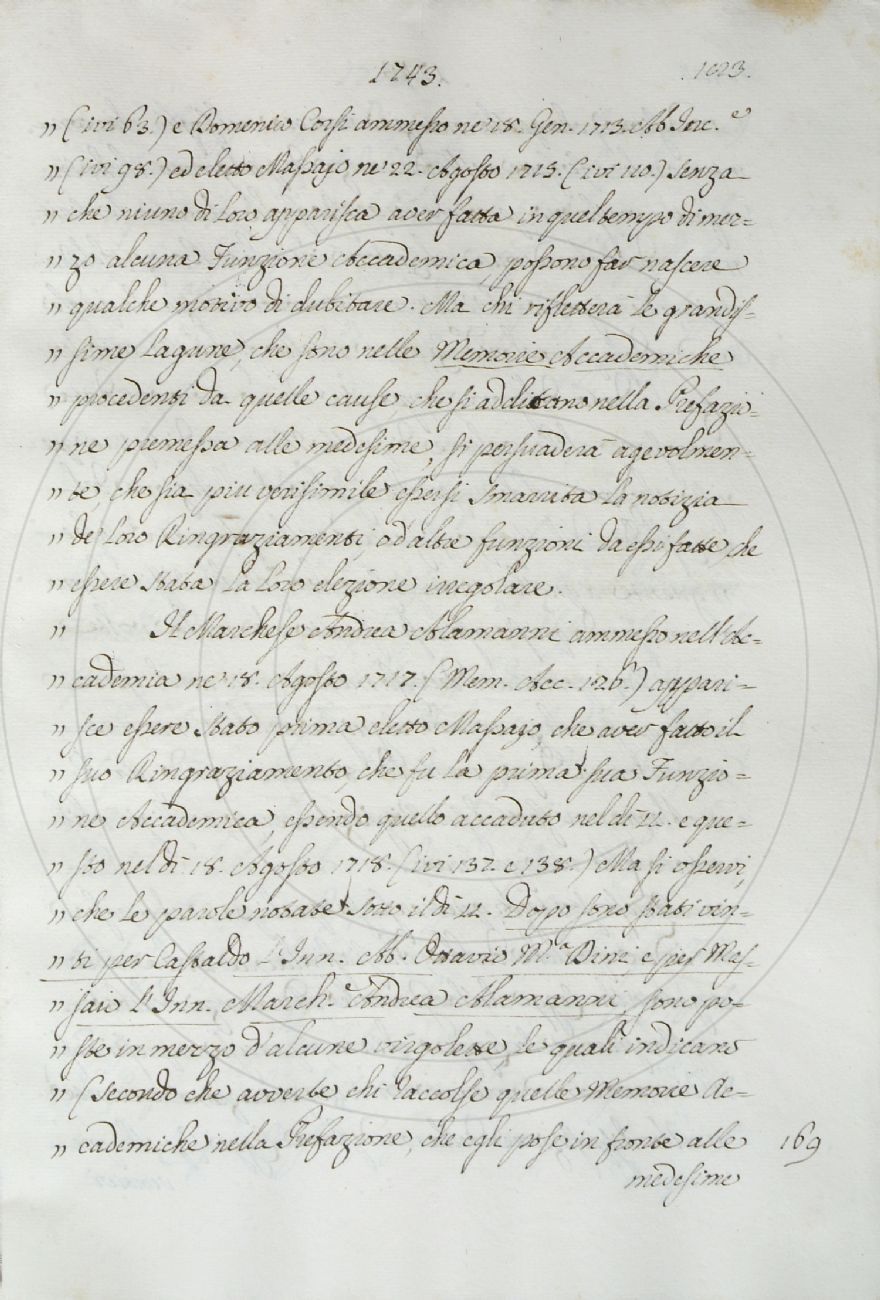 1743. 1023.
" (ivi 63.) e Domenico Corsi ammesso ne' 18. Gen. 1713. Ab Inc.e
" (ivi 98.) ed eletto Massajo ne' 22. Agosto 1715. (ivi 110.) senza
" che niuno di loro apparisca aver fatta in quel tempo di mez=
" zo alcuna Funzione Accademica, possono far nascere
" qualche motivo di dubitare. Ma chi rifletterà le grandis=
" sime lagune, che sono nelle Memorie Accademiche
" procedenti da quelle cause, che si additano nella Prefazio=
" ne premessa alle medesime, si persuaderà agevolmen=
" te, che sia piu verisimile essersi smarrita la notizia
" de' loro Ringraziamenti, o d'altre funzioni da essi fatte, che
" essere stata la loro elezione irregolare.
" Il Marchese Andrea Alamanni ammesso nell'Ac=
" cademia ne' 18. Agosto 1717. (Mem. Acc. 126.) appari=
" sce essere stato prima eletto Massajo, che aver fatto il
" suo Ringraziamento, che fu la prima sua Funzio=
" ne Accademica, essendo quello accaduto nel dì 11. e que=
" sto nel dì 18. Agosto 1718. (ivi 137. e 138.) Ma si osservi,
" che le parole notate sotto il dì 11. Dopo sono stati vin=
" ti per Castaldo l'Inn. Ab. Ottavio M.a Dini e per Mas=
" saio l'Inn. March.e Andrea Alamanni, sono po=
" ste in mezzo d'alcune virgolette, le quali indicano
" (secondo che avverte chi raccolse quelle Memorie Ac=
" cademiche nella Prefazione, che egli pose in fronte alle 169
medesime